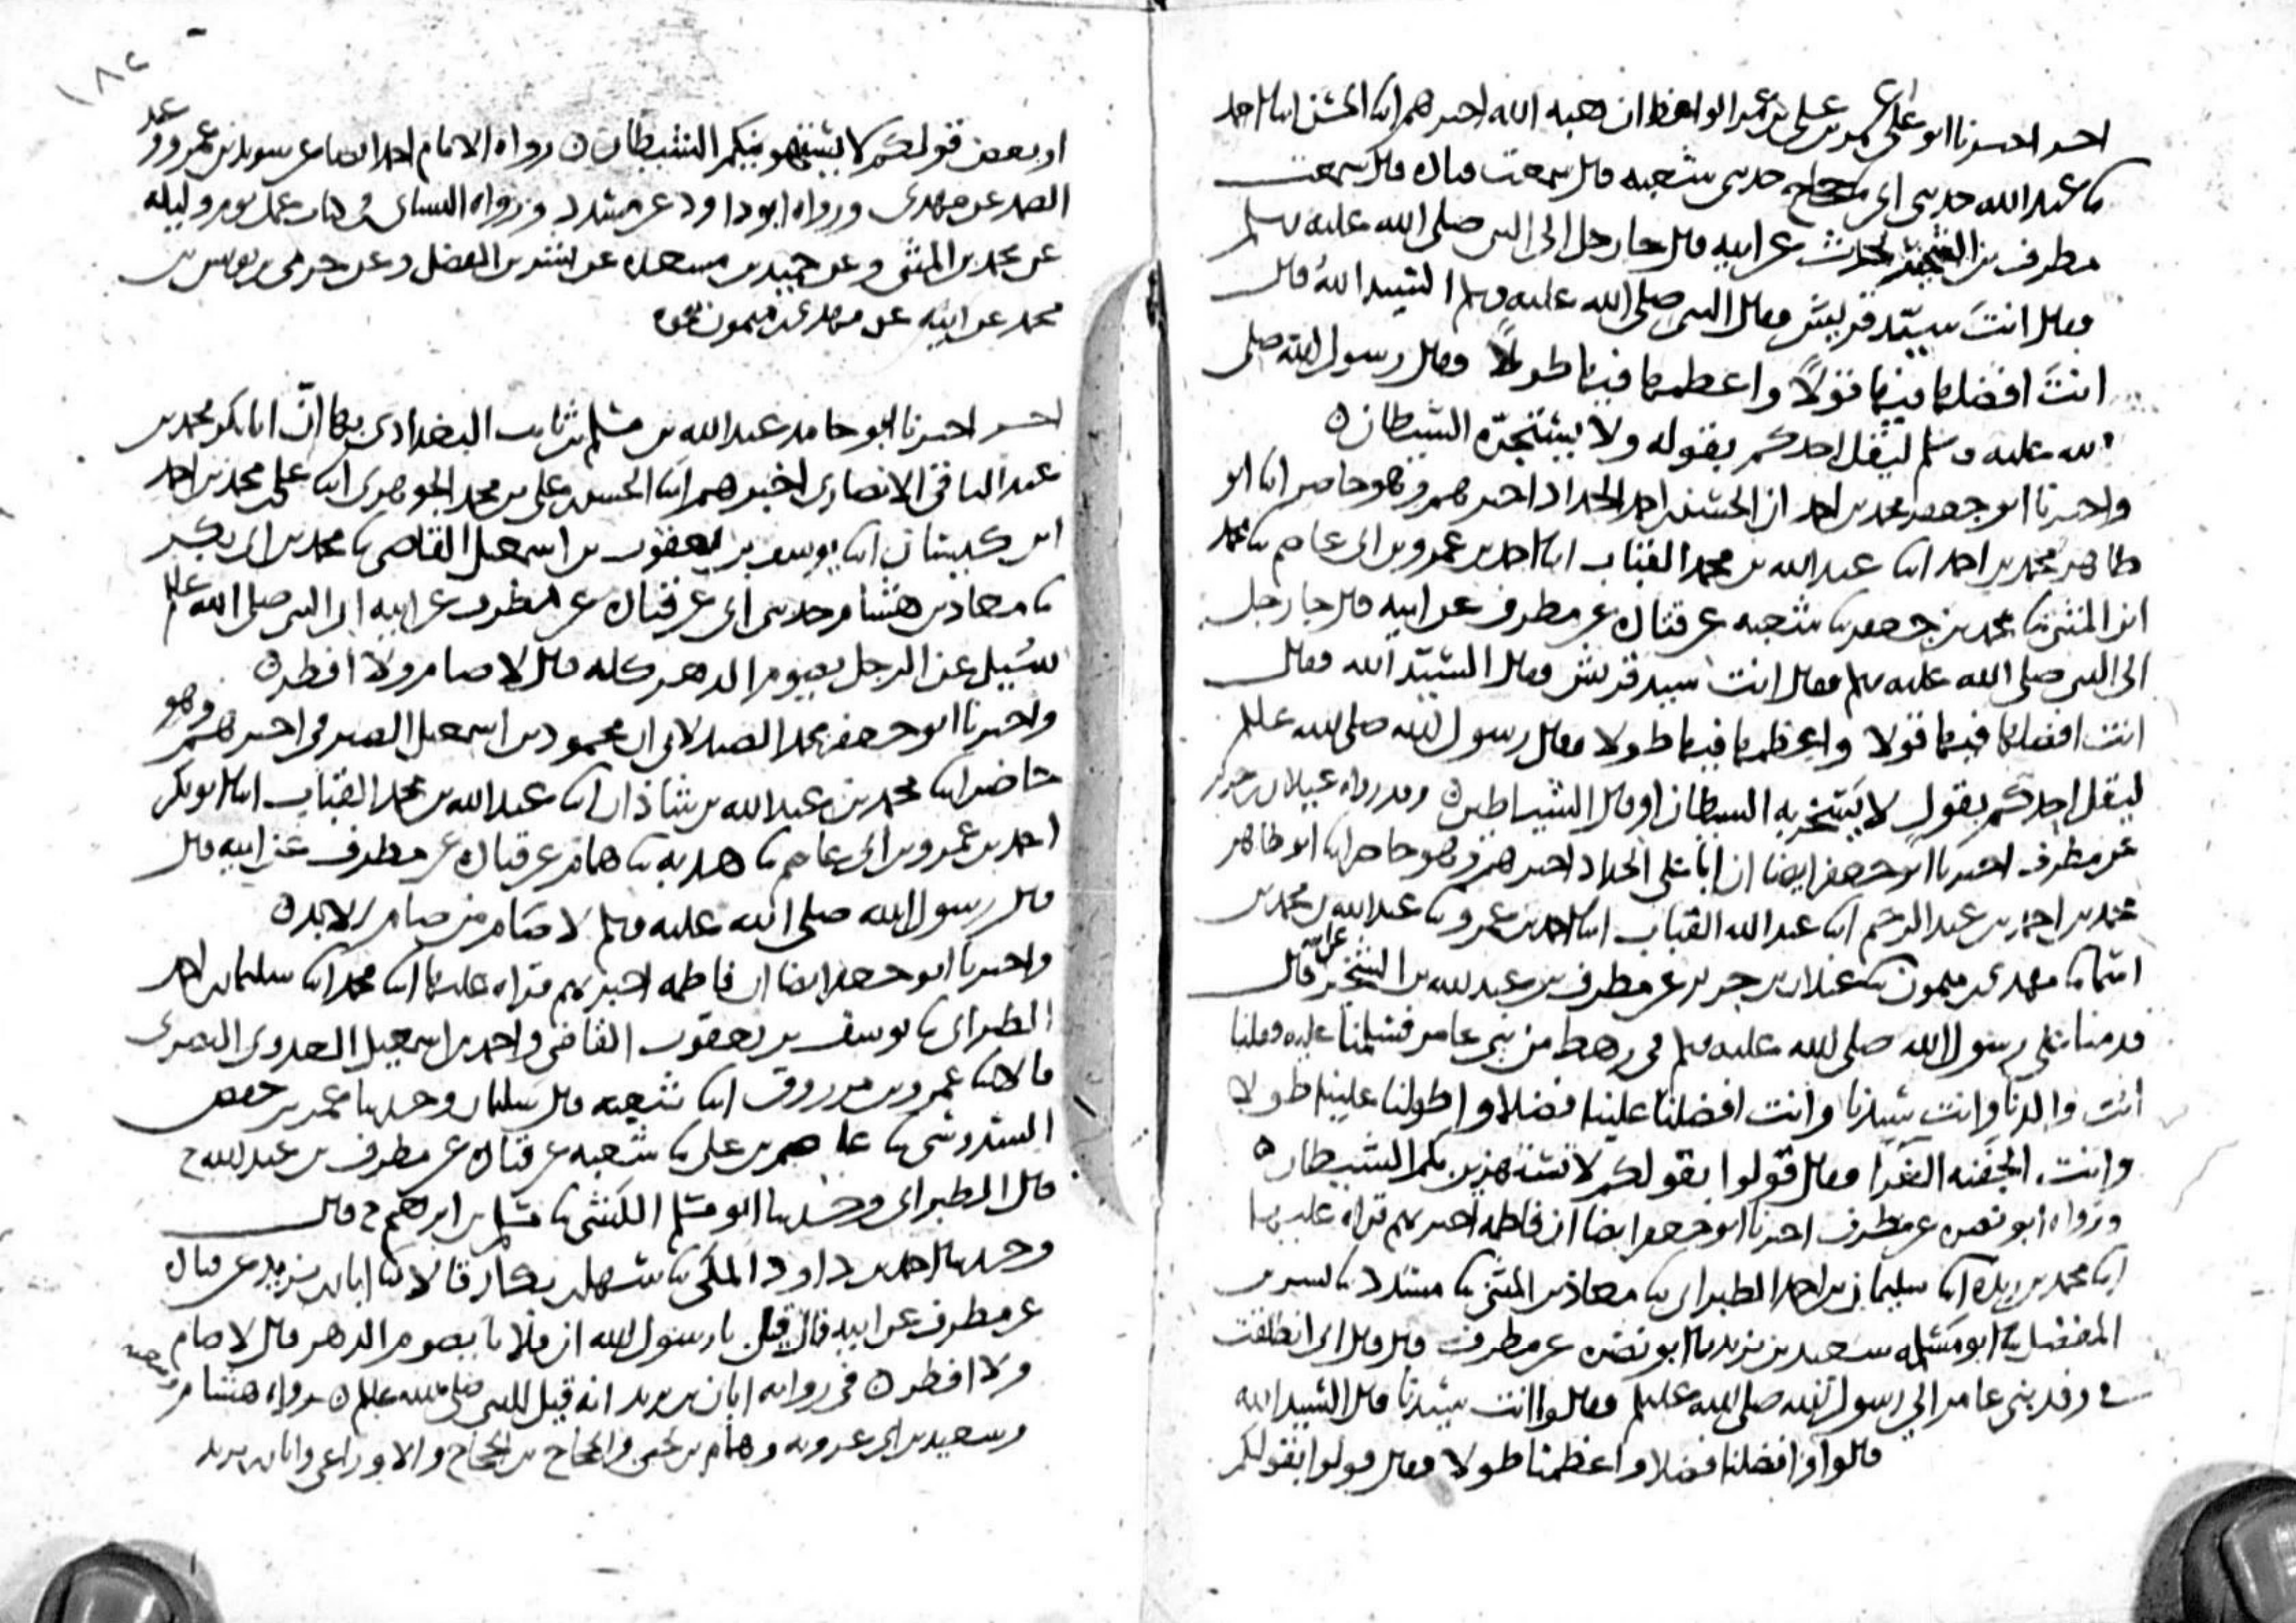 احر اخبرنا ابو علي عمر بن علي بن عمر الواعظ ان هبة الله اخبرهم ابنا الحسن ابنا احمد
ثنا عبد الله حدثني ابي ثنا حجاج حدثني شعبة قال سمعت قتادة قال سمعت
مطرف بن الشخير يحدث عن ابيه قال جا رجل الى النبي صلى الله عليه وسلم
فقال انت سيد قريش فقال النبي صلى الله عليه وسلم السيد الله قال
انت افضلها فيها قولا واعظمها فيها طولا فقال رسول الله صلى
الله عليه وسلم ليقل احدكم بقوله ولا يستجره الشيطان
واخبرنا ابو جعفر محمد بن احمد ان الحسن بن احمد الحداد اخبرهم وهو حاضر ابنا ابو
طاهر محمد بن احمد ابنا عبد الله بن محمد القباب ابنا احمد بن عمرو بن ابي عاصم ثنا محمد
ابن المثنى ثنا محمد بن جعفر ثنا شعبة عن قتادة عن مطرف عن ابيه قال جا رجل
الى النبي صلى الله عليه وسلم فقال انت سيد قريش فقال السيد الله فقال
انت افضلها فيها قولا واعظمها فيها طولا فقال رسول الله صلى الله عليه وسلم
ليقل احدكم بقوله لا يستجريه الشيطان او قال الشياطين وقد رواه غيلان بن جرير
عن مطرف اخبرنا ابو جعفر ايضا ان ابا علي الحداد اخبرهم وهو حاضر ابنا ابو طاهر
محمد بن احمد بن عبد الرحيم ابنا عبد الله القباب ابنا احمد بن عمرو ثنا عبد الله بن محمد بن
اسما ثنا مهدي بن ميمون ثنا غيلان بن جرير عن مطرف بن عبد الله بن الشخير عن ابيه قال
قدمنا على رسول الله صلى الله عليه وسلم في رهط من بني عامر فسلمنا عليه وقلنا
انت والدنا وانت سيدنا وانت افضلنا علينا فضلا واطولنا علينا طولا
وانت الجفنة الغرا فقال قولوا بقولكم لا تستهزين بكم الشيطان
ورواه ابو نضرة عن مطرف اخبرنا ابو جعفر ايضا ان فاطمة اخبرتهم قراة عليها
ابنا محمد بن ريذة ابنا سليمان بن احمد الطبراني ثنا معاذ بن المثنى ثنا مسدد ثنا بشر بن
المفضل ثنا ابو مسلمة سعيد بن يزيد ثنا ابو نضرة عن مطرف قال قال ابي انطلقت
في وفد بني عامر الى رسول الله صلى الله عليه وسلم فقالوا انت سيدنا قال السيد الله
قالوا وافضلنا فضلا واعظمنا طولا فقال قولوا بقولكم
١٨٢
او بعض قولكم لا يستهوينكم الشيطان رواه الامام احمد ايضا عن سويد بن عمرو وعبد
الصمد عن مهدي ورواه ابو داود عن مسدد ورواه النسائي في كتاب عمل يوم وليلة
عن محمد بن المثنى وعن حميد بن مسعدة عن بشر بن المفضل وعن حرمي بن يونس بن
محمد عن ابيه عن مهدي بن ميمون نحوه
احر اخبرنا ابو حامد عبد الله بن مسلم بن ثابت البغدادي بها ان ابا بكر محمد بن
عبد الباقي الانصاري اخبرهم ابنا الحسن بن علي بن محمد الجوهري ابنا علي بن محمد بن احمد
ابن كيسان ابنا يوسف بن يعقوب بن اسمعيل القاضي ثنا محمد بن ابي بكر
ثنا معاذ بن هشام حدثني ابي عن قتادة عن مطرف عن ابيه ان النبي صلى الله عليه وسلم
سئيل عن الرجل يصوم الدهر كله قال لا صام ولا افطر
واخبرنا ابو جعفر محمد الصيدلاني ان محمود بن اسمعيل الصيرفي اخبرهم وهو
حاضر ابنا محمد بن عبد الله بن شاذان ابنا عبد الله بن محمد القباب ابنا ابو بكر
احمد بن عمرو بن ابي عاصم ثنا هدبة ثنا همام عن قتادة عن مطرف عن ابيه قال
قال رسول الله صلى الله عليه وسلم لا صام من صام الابد
واخبرنا ابو جعفر ايضا ان فاطمة اخبرتهم قراة عليها ابنا محمد ابنا سليمان بن احمد
الطبراني ثنا يوسف بن يعقوب القاضي واحمد بن اسمعيل العدوي البصري
قالا ثنا عمرو بن مرزوق ابنا شعبة قال سليمان وحدثنا عمر بن حفص
السدوسي ثنا عاصم بن علي ثنا شعبة عن قتادة عن مطرف بن عبد الله ح
قال الطبراني وحدثنا ابو مسلم الكشي ثنا مسلم بن ابرهيم ح قال
وحدثنا احمد بن داود المكي ثنا سهل بن بكار قالا ثنا ابان بن يزيد عن قتادة
عن مطرف عن ابيه قال قيل يا رسول الله ان فلانا يصوم الدهر قال لا صام
ولا افطر في رواية ابان بن يزيد انه قيل للنبي صلى الله عليه وسلم رواه هشام
وسعيد بن ابي عروبة وهمام بن يحيى والحجاج بن الحجاج والاوزاعي وابان بن يزيد